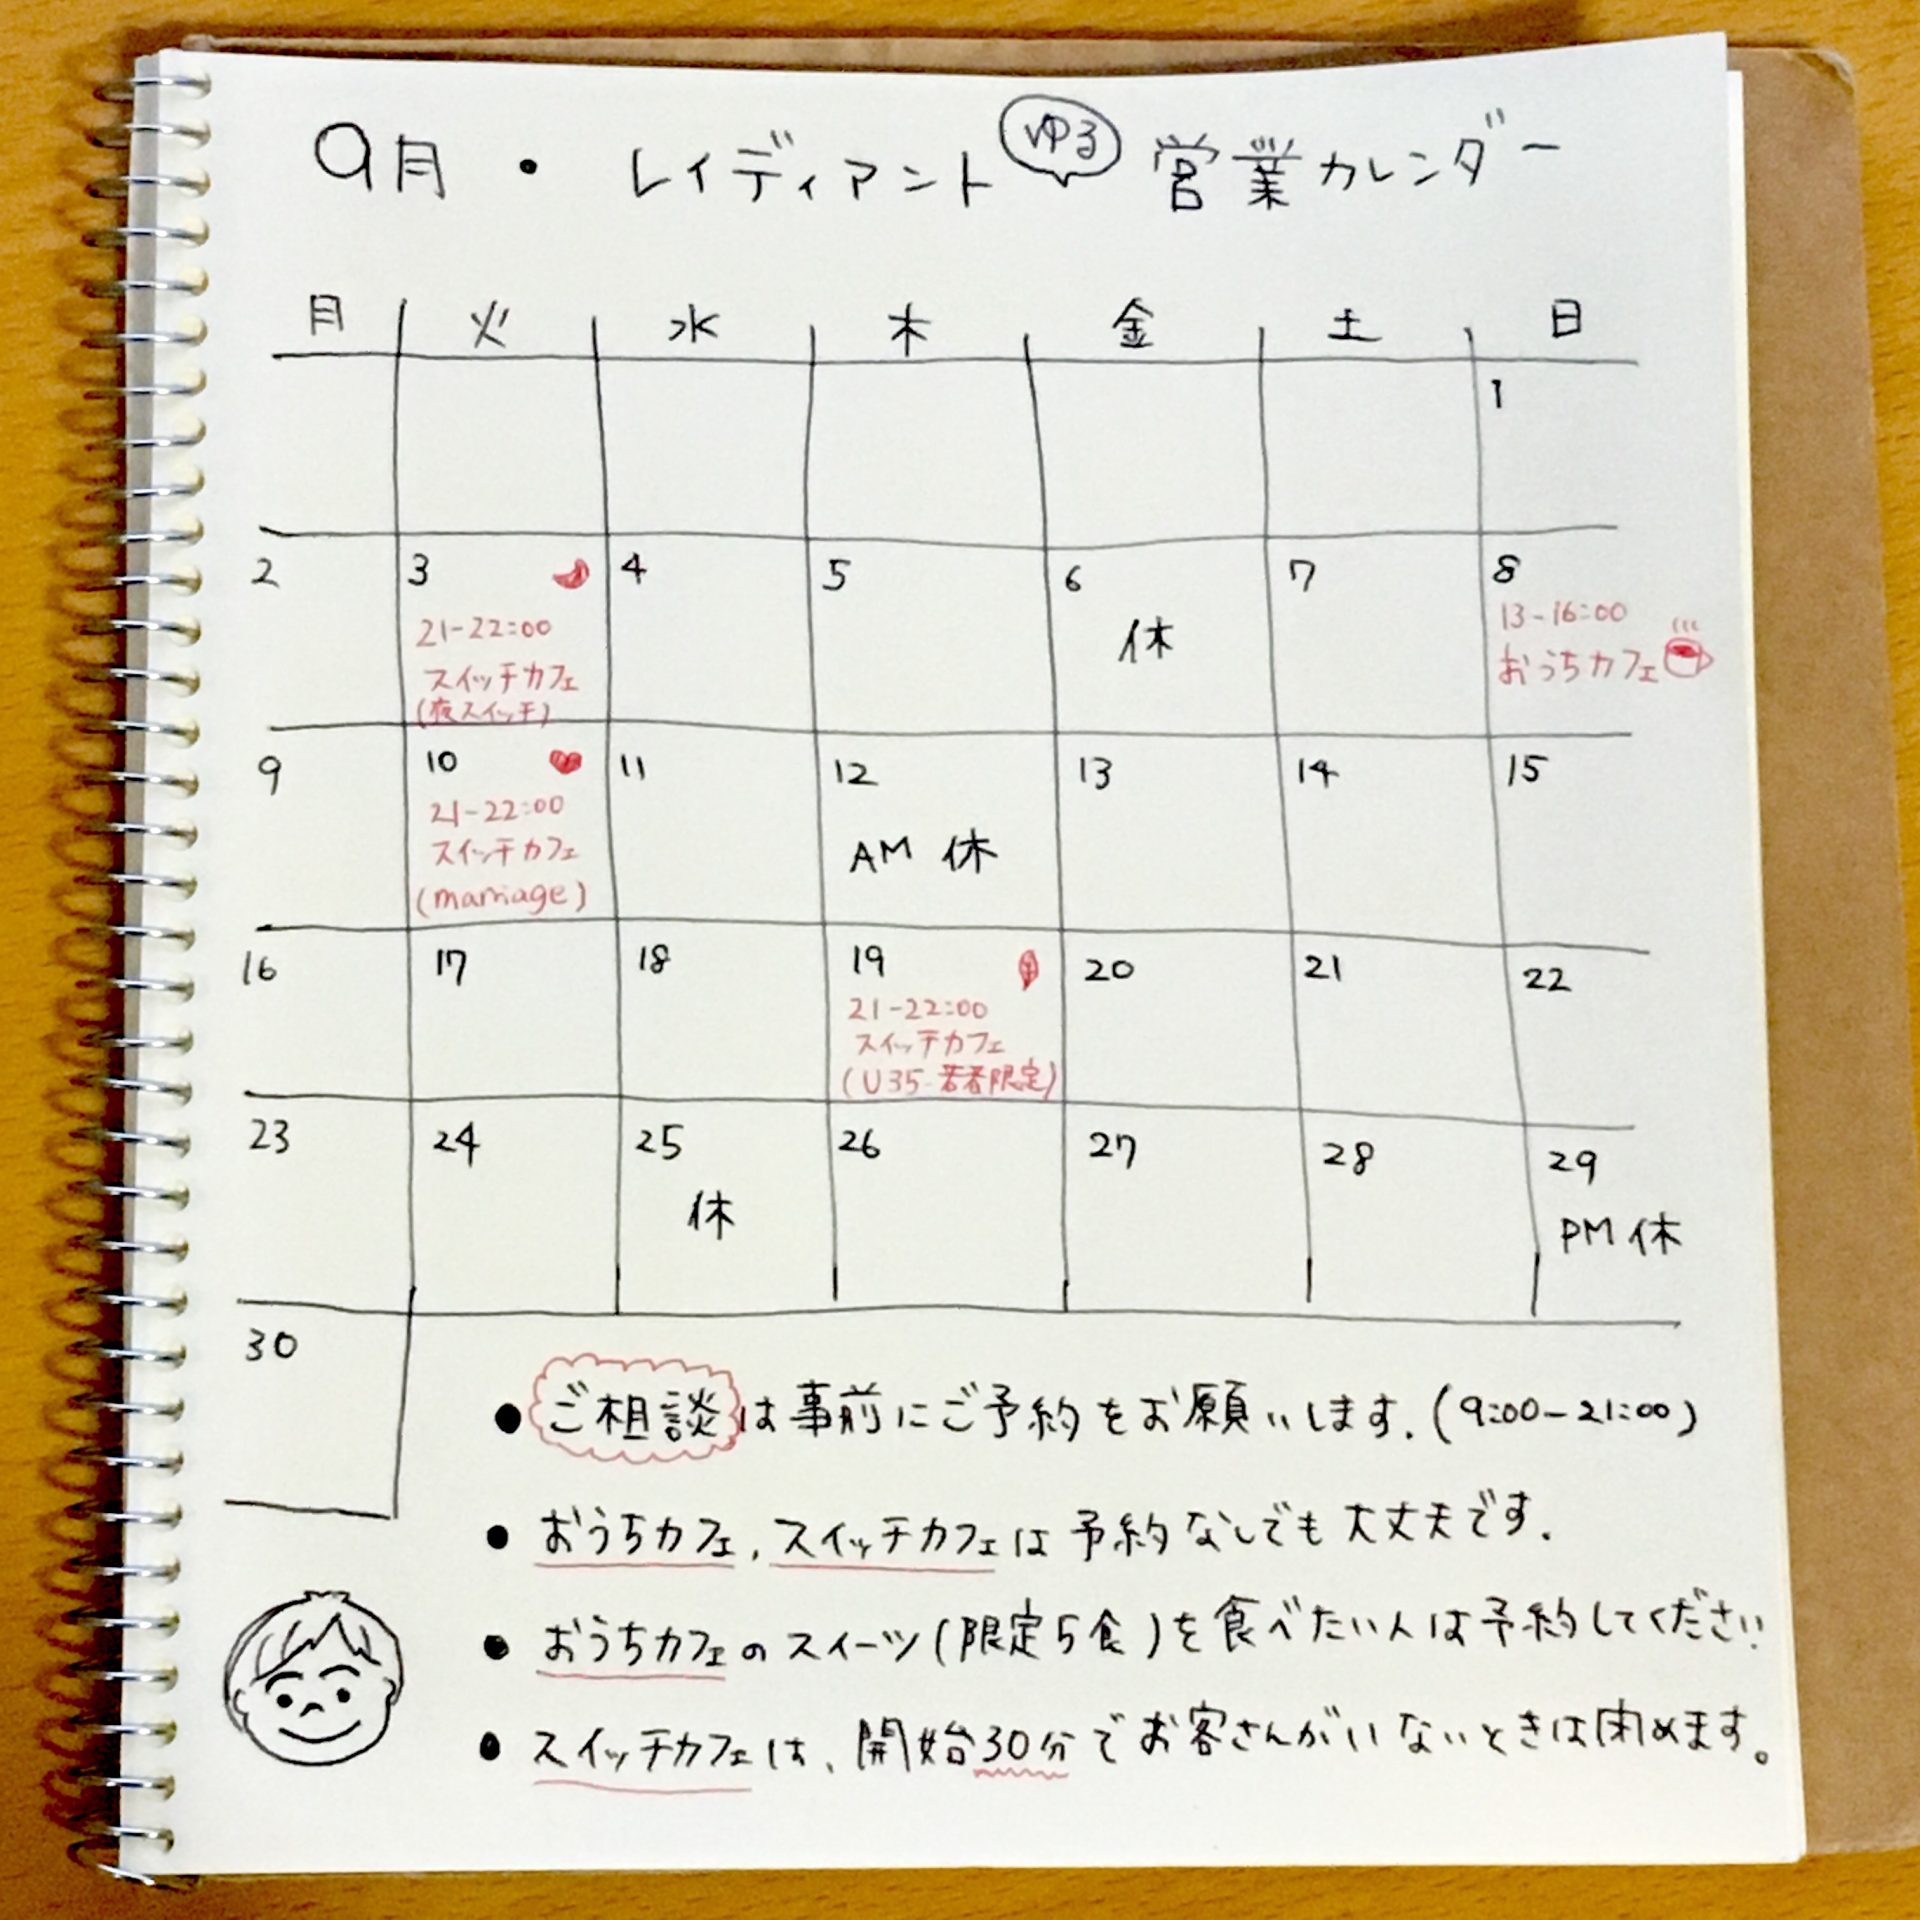 9月・レイディアント ゆる 営業カレンダー
月 火 水 木 金 土 日
1
2 3 4 5 6 7 8
21-22:00
スイッチカフェ
(夜スイッチ)
休
13-16:00
おうちカフェ
9 10 11 12 13 14 15
21-22:00
スイッチカフェ
(marriage)
AM 休
16 17 18 19 20 21 22
21-22:00
スイッチカフェ
(U35-若者限定)
23 24 25 26 27 28 29
休
PM 休
30
●ご相談は事前にご予約をお願いします.(9:00-21:00)
●おうちカフェ,スイッチカフェは予約なしでも大丈夫です.
●おうちカフェのスイーツ(限定5食)を食べたい人は予約してください
●スイッチカフェは、開始30分でお客さんがいないときは閉めます。